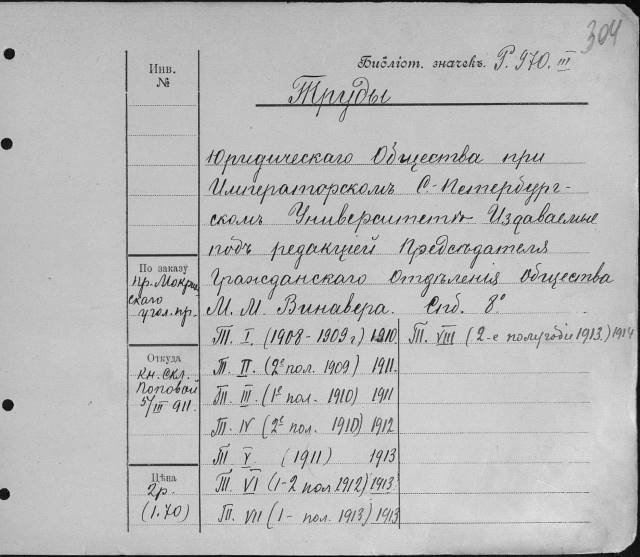 304
Библіот. значекъ. Р. 970. III
Инв.
№
Труды
Юридическаго Общества при
Императорскомъ С.-Петербург-
скомъ Университетѣ Издаваемые
подъ редакціей Предсѣдателя
Гражданскаго Отдѣленія Общества
М. М. Винавера. Спб. 8°
По заказу
пр. Мокрин-
скаго
угол. пр.
Т. I. (1908-1909 г) 1910
Т. II. (2е пол. 1909) 1911.
Т. III. (1е пол. 1910) 1911
Т. IV (2е пол. 1910) 1912
Т. V. (1911) 1913
Т. VI (1-2 пол 1912) 1913
Т. VII (1- пол. 1913) 1913
Т. VIII (2-е полугодіе 1913.) 1914
Откуда
Кн. скл.
Поповой
5/III 911.
Цѣна
2 р.
(1.70)